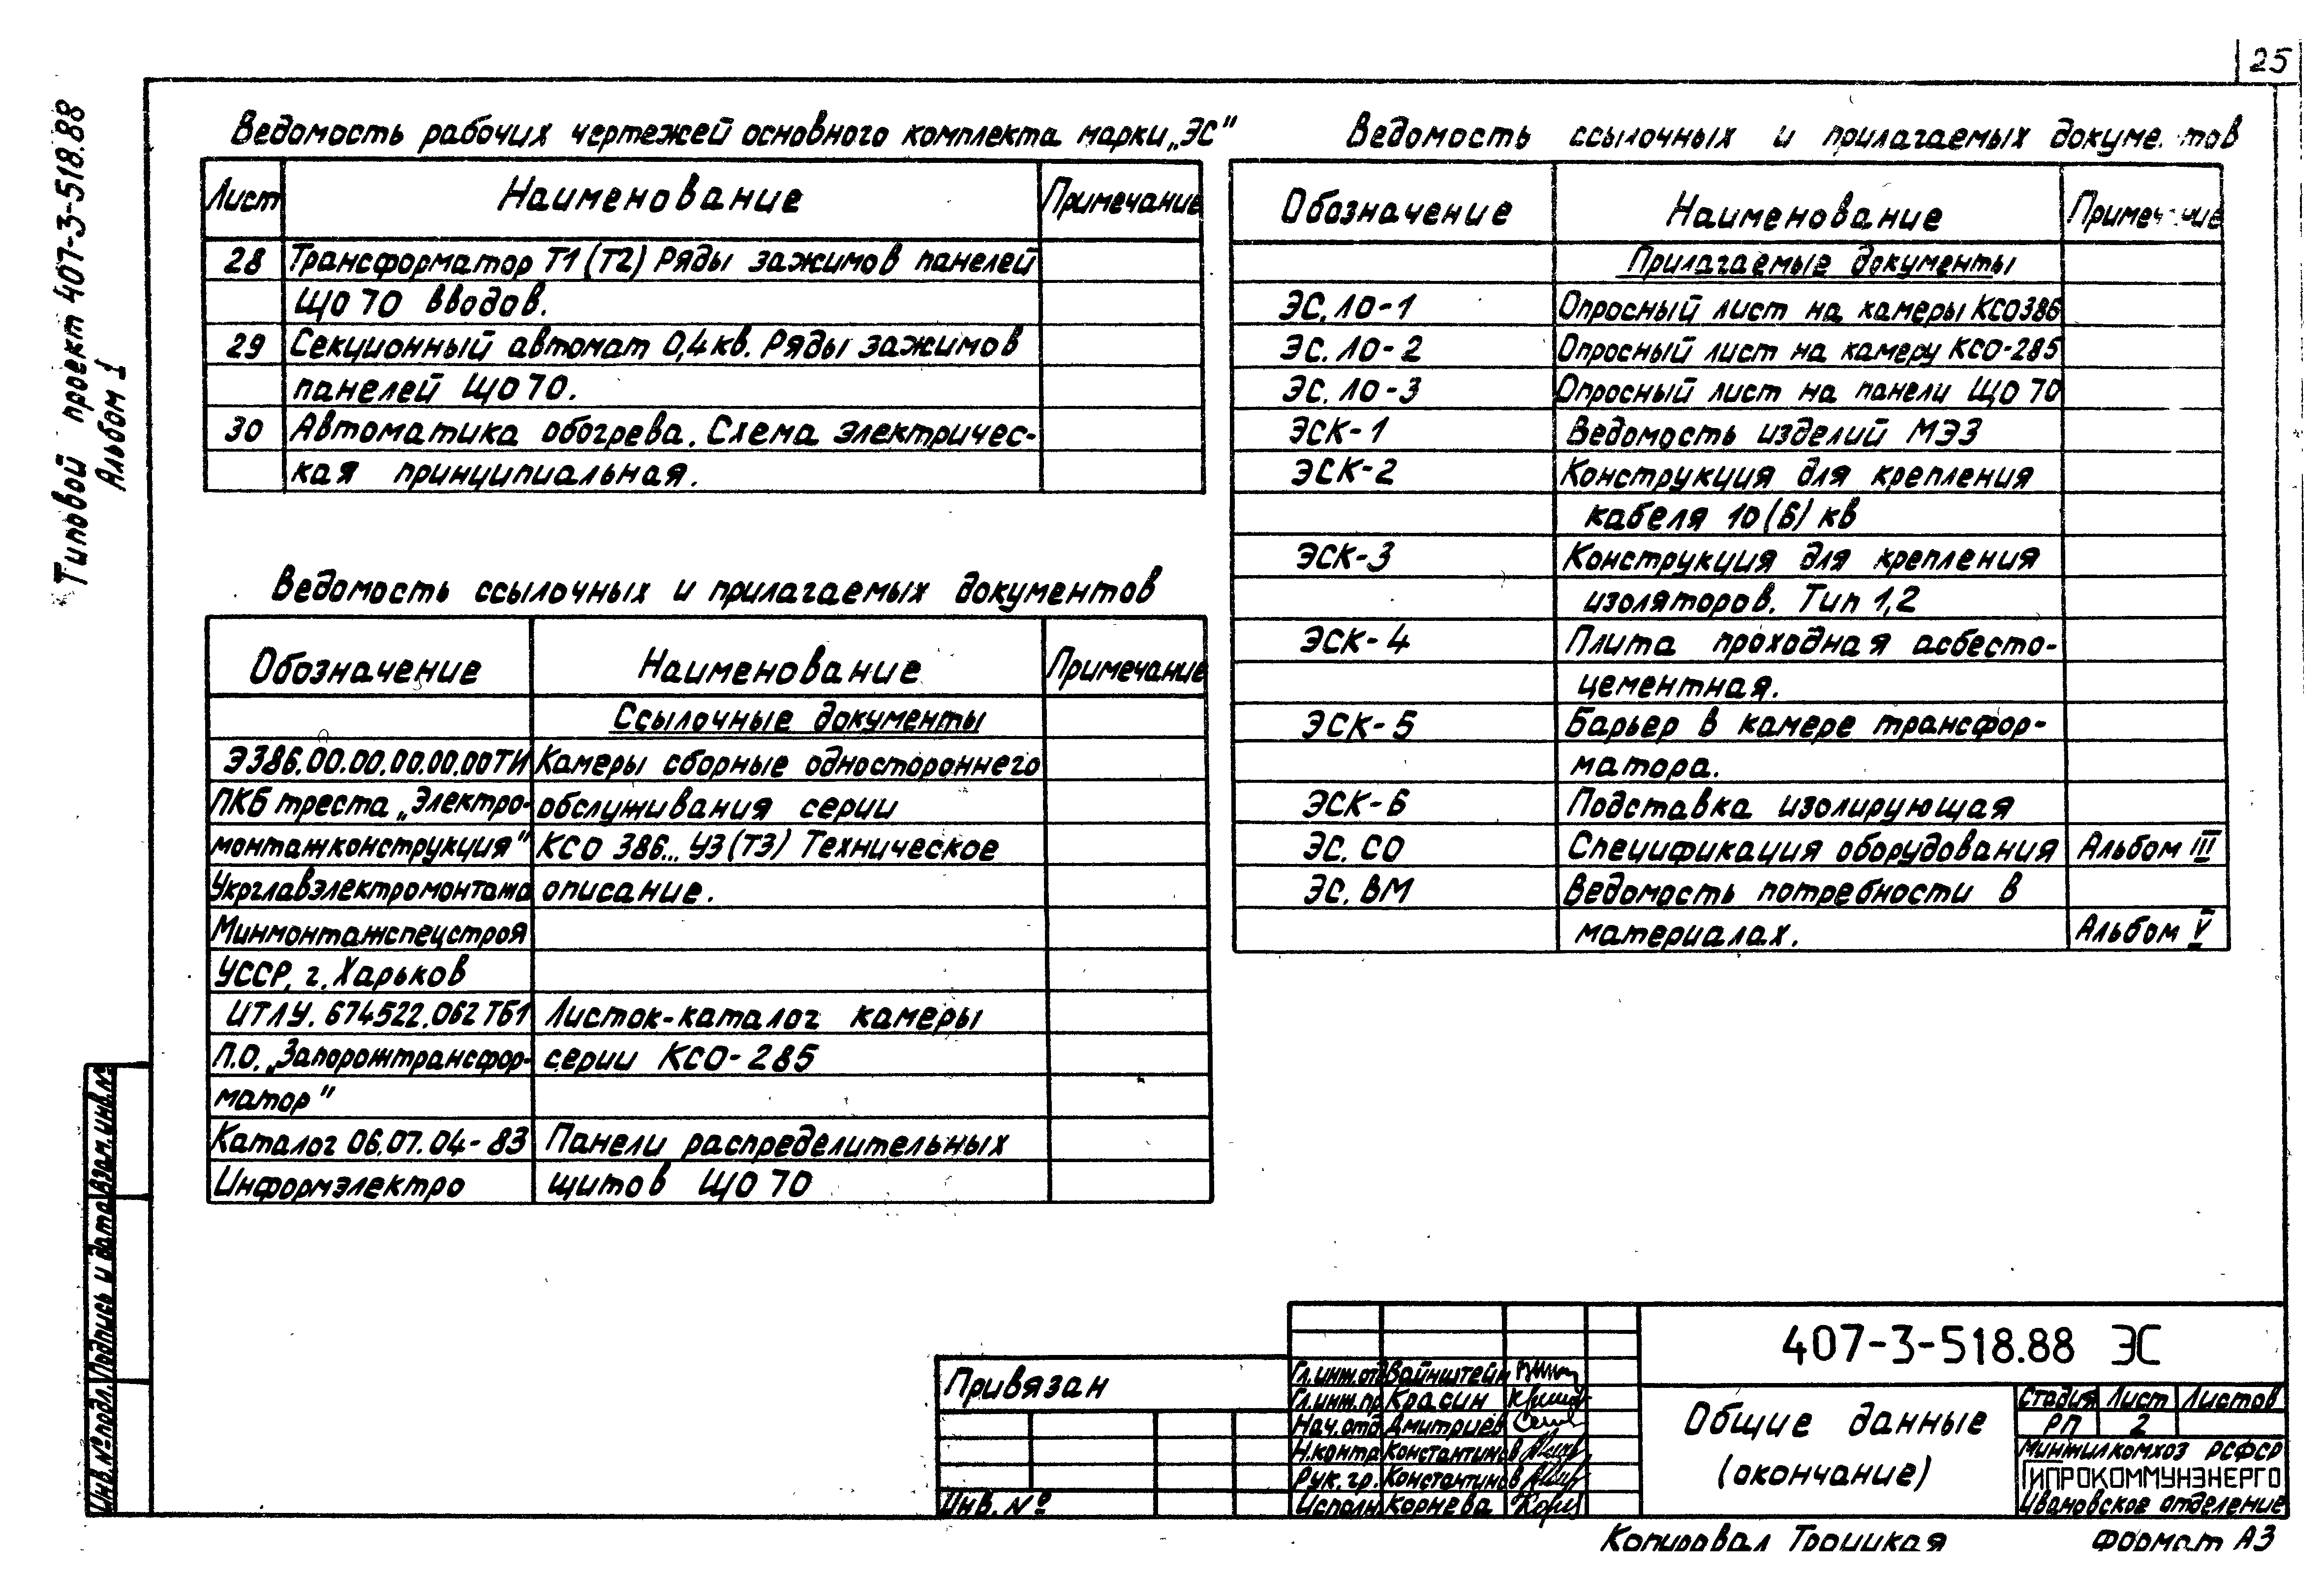 25
Типовой проект 407-3-518.88
Альбом I
Ведомость рабочих чертежей основного комплекта марки „ЭС"
Лист Наименование Примечание
28 Трансформатор Т1 (Т2) Ряды зажимов панелей
ЩО 70 вводов.
29 Секционный автомат 0,4 кв. Ряды зажимов
панелей ЩО 70.
30 Автоматика обогрева. Схема электричес-
кая принципиальная.
Ведомость ссылочных и прилагаемых документов
Обозначение Наименование Примечание
Ссылочные документы
Э386.00.00.00.00.00ТИ Камеры сборные одностороннего
ПКБ треста „Электро- обслуживания серии
монтажконструкция" КСО 386... У3 (Т3) Техническое
Укрглавэлектромонтажа описание.
Минмонтажспецстроя
УССР, г. Харьков
ИТЛУ. 674522.062 ТБ1 Листок-каталог камеры
П.О. „Запорожтрансфор- серии КСО-285
матор"
Каталог 06.07.04-83 Панели распределительных
Информэлектро щитов ЩО 70
Ведомость ссылочных и прилагаемых докуме тов
Обозначение Наименование Примеч ние
Прилагаемые документы
ЭС.ЛО-1 Опросный лист на камеры КСО386
ЭС.ЛО-2 Опросный лист на камеру КСО-285
ЭС.ЛО-3 Опросный лист на панели ЩО 70
ЭСК-1 Ведомость изделий МЭЗ
ЭСК-2 Конструкция для крепления
кабеля 10 (6) кв
ЭСК-3 Конструкция для крепления
изоляторов. Тип 1,2
ЭСК-4 Плита проходная асбесто-
цементная.
ЭСК-5 Барьер в камере трансфор-
матора.
ЭСК-6 Подставка изолирующая
ЭС.СО Спецификация оборудования Альбом III
ЭС.ВМ Ведомость потребности в
материалах. Альбом V
Инв.№ подл. Подпись и дата Взам.инв.№
Привязан
Инв. №
Гл.инж.отд Вайнштейн
Гл.инж.пр Красин
Нач.отд Дмитриев
Н.контр Константинов
Рук.гр. Константинов
Исполн Корнева
407-3-518.88 ЭС
Общие данные
(окончание)
Стадия Лист Листов
РП 2
Минжилкомхоз РСФСР
ГИПРОКОММУНЭНЕРГО
Ивановское отделение
Копировал Троицкая Формат А3